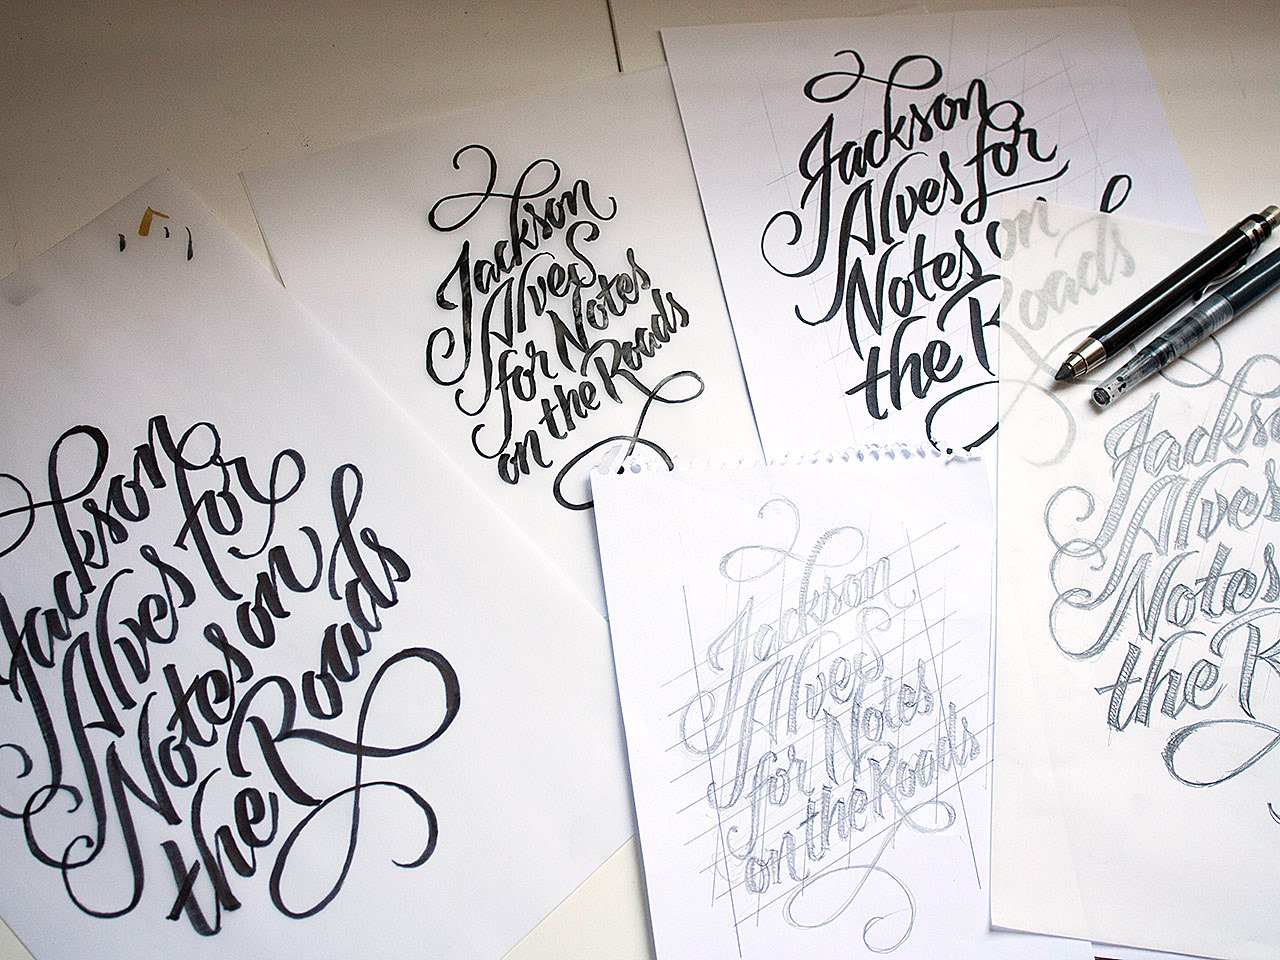 Jackson
Alves for
Notes on
the Roads
Jackson
Alves
for Notes
on the Roads
Jackson
Alves for
Notes on
the R
on
Roads
Jackson
Alves
for Notes
on the Roads
Jackso
Alves
Notes
the R